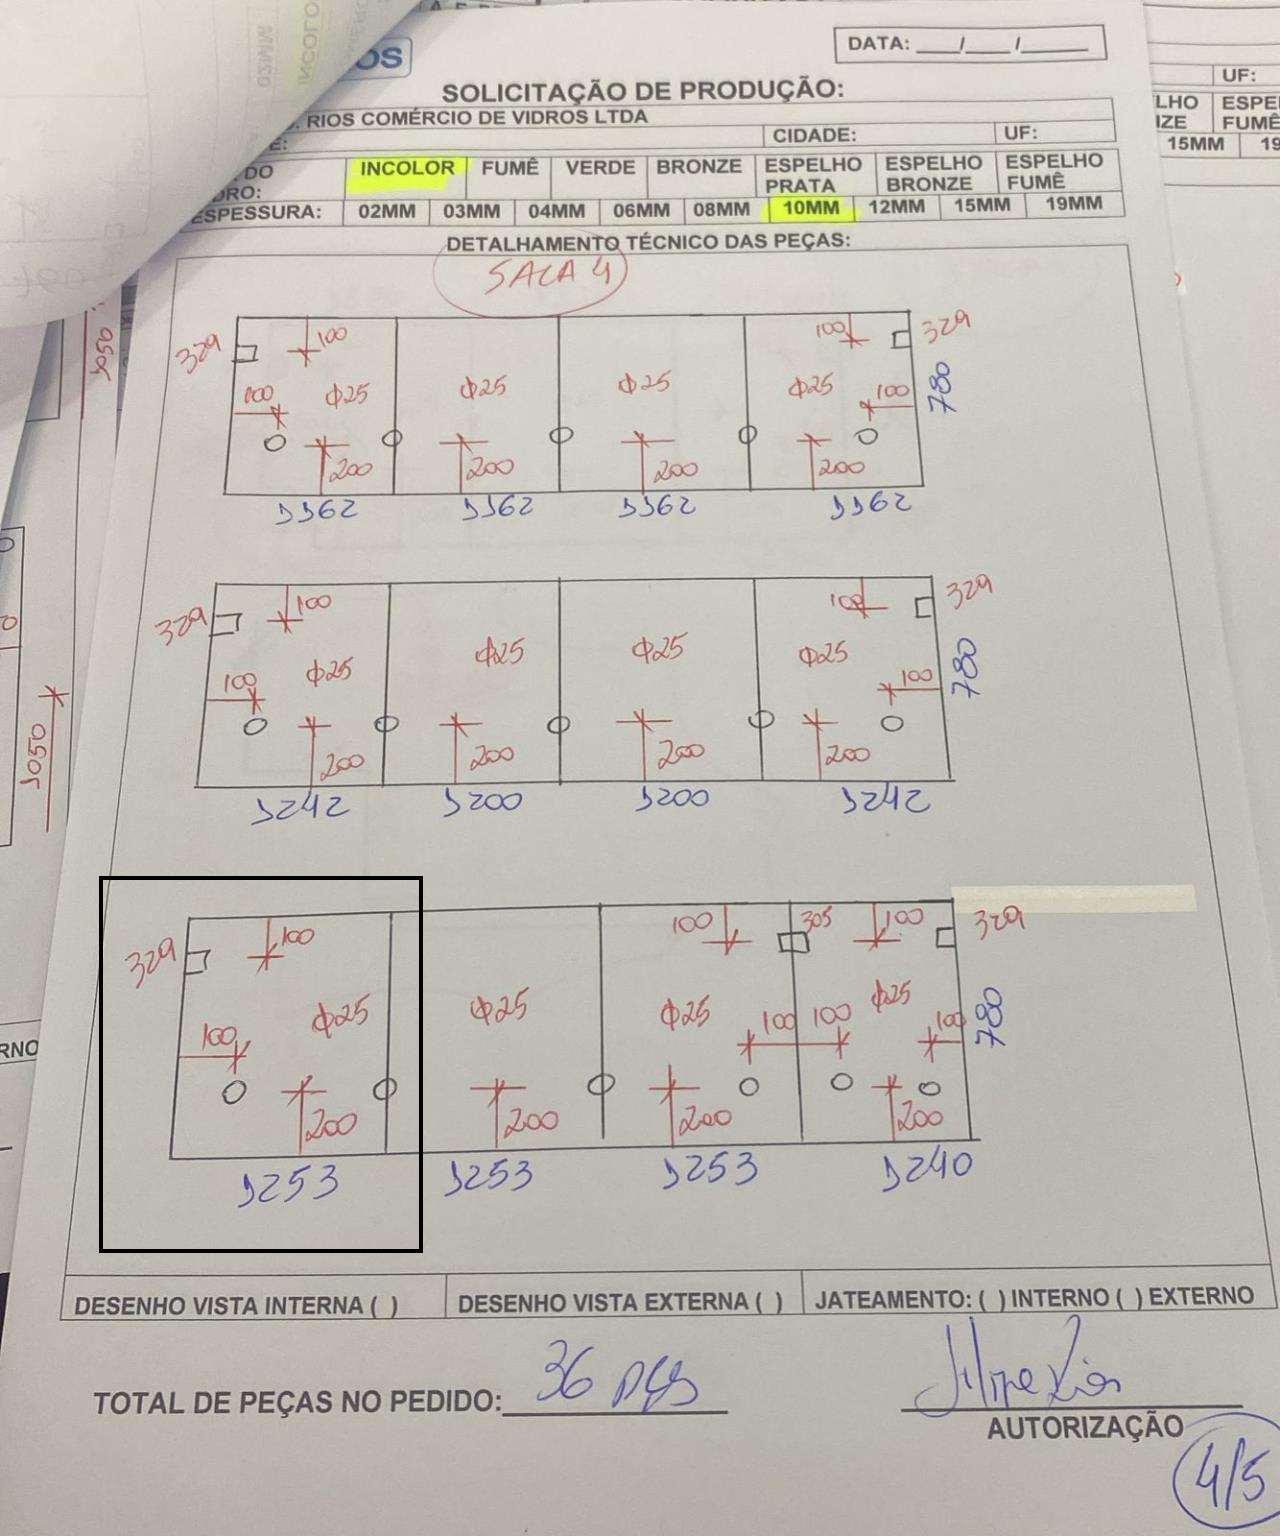 DATA: ___/___/_____
OS
SOLICITAÇÃO DE PRODUÇÃO:
RIOS COMÉRCIO DE VIDROS LTDA
E: CIDADE: UF:
DO INCOLOR FUMÊ VERDE BRONZE ESPELHO PRATA ESPELHO BRONZE ESPELHO FUMÊ
DRO:
ESPESSURA: 02MM 03MM 04MM 06MM 08MM 10MM 12MM 15MM 19MM
DETALHAMENTO TÉCNICO DAS PEÇAS:
SALA 4
329 100 100 329
100 Φ25 Φ25 Φ25 Φ25 100 780
200 200 200 200
1162 1162 1162 1162
329 100 100 329
100 Φ25 Φ25 Φ25 Φ25 100 780
200 200 200 200
1242 1200 1200 1242
329 100 100 305 100 329
100 Φ25 Φ25 Φ25 100 100 Φ25 100 780
200 200 200 200
1253 1253 1253 1240
DESENHO VISTA INTERNA ( ) DESENHO VISTA EXTERNA ( ) JATEAMENTO: ( ) INTERNO ( ) EXTERNO
TOTAL DE PEÇAS NO PEDIDO: 36 pçs
AUTORIZAÇÃO
4/5
UF:
LHO ESPE
IZE FUMÊ
15MM 19
1050
1050
RNO
02MM
INCOLO